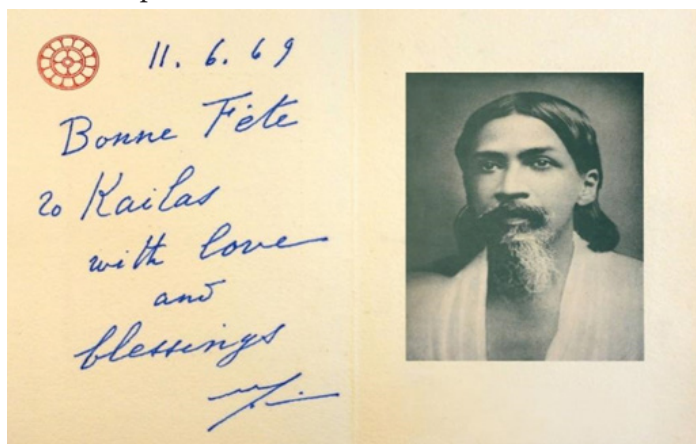 11. 6. 69
Bonne Fête
to Kailas
with love
and
blessings